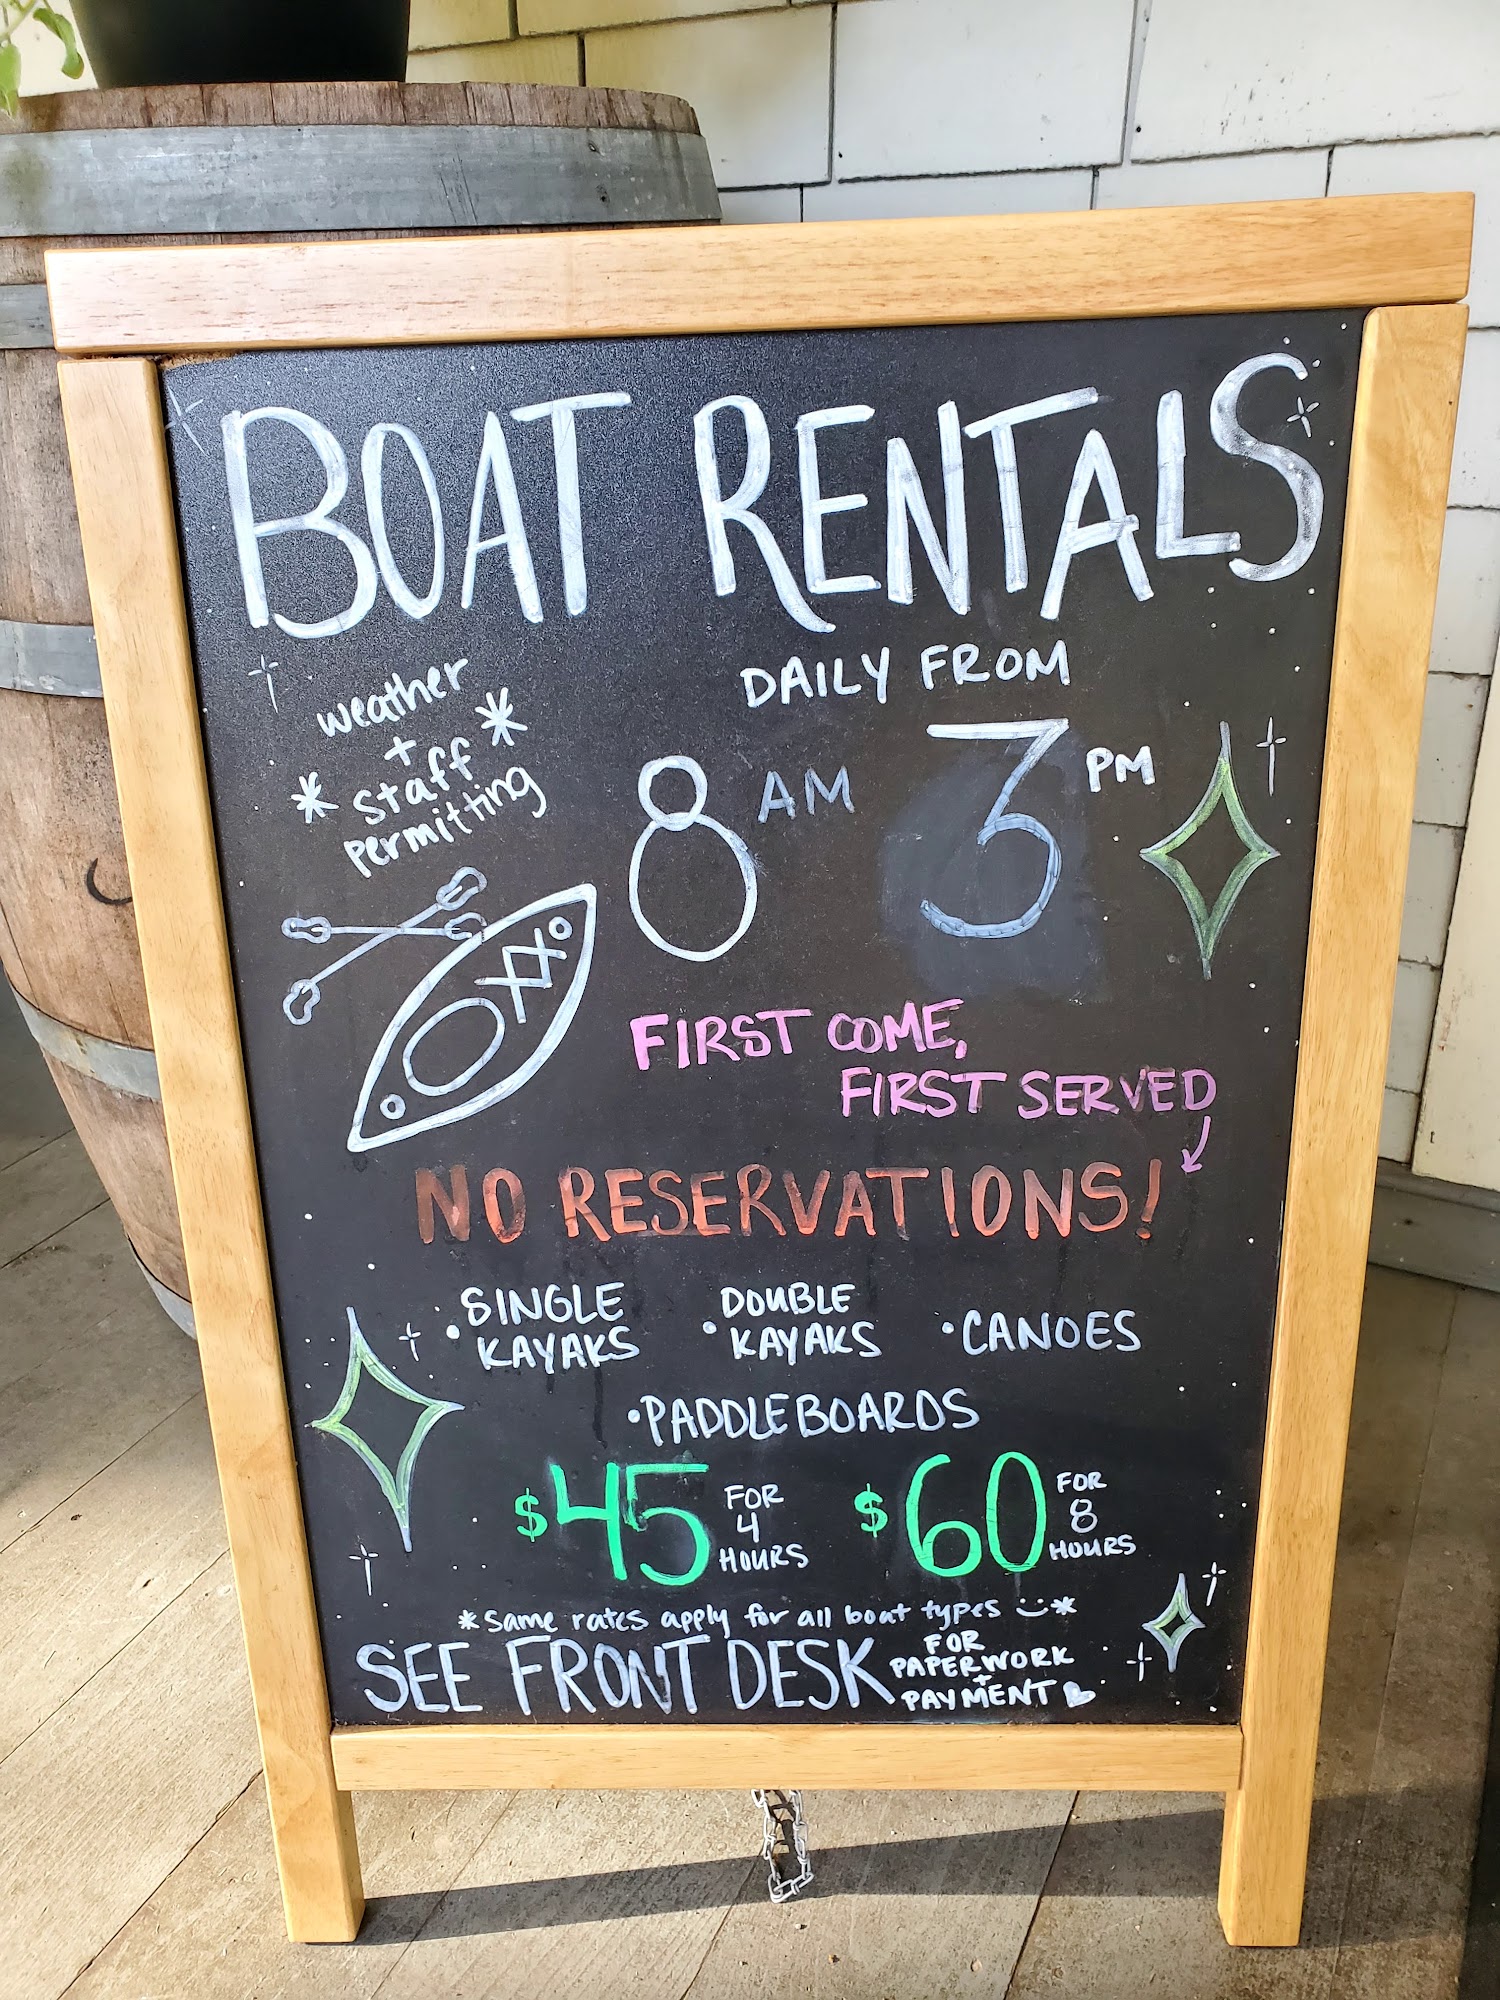 BOAT RENTALS
weather
+
* staff *
permitting
DAILY FROM
8 AM 3 PM
FIRST COME,
FIRST SERVED
NO RESERVATIONS!
• SINGLE KAYAKS
• DOUBLE KAYAKS
• CANOES
• PADDLEBOARDS
$45 FOR 4 HOURS
$60 FOR 8 HOURS
*same rates apply for all boat types *
SEE FRONT DESK FOR PAPERWORK + PAYMENT